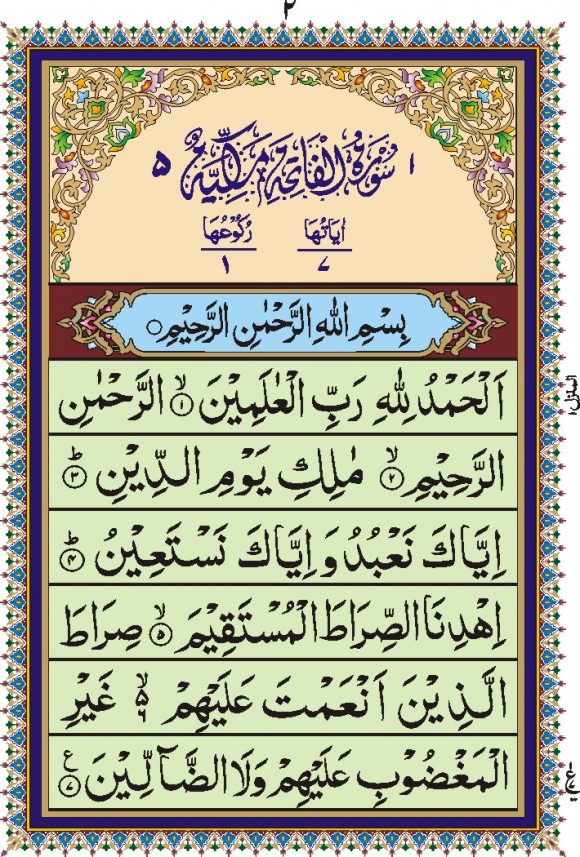 ٢
١ سُوْرَةُ الْفَاتِحَةِ مَكِّيَّةٌ ٥
اٰیَاتُهَا ٧ رُكُوْعُهَا ١
بِسْمِ اللّٰهِ الرَّحْمٰنِ الرَّحِیْمِ
اَلْحَمْدُ لِلّٰهِ رَبِّ الْعٰلَمِیْنَ ۙ﴿١﴾ الرَّحْمٰنِ
الرَّحِیْمِ ۙ﴿٢﴾ مٰلِكِ یَوْمِ الدِّیْنِ ؕ﴿٣﴾
اِیَّاكَ نَعْبُدُ وَ اِیَّاكَ نَسْتَعِیْنُ ؕ﴿۴﴾
اِهْدِنَا الصِّرَاطَ الْمُسْتَقِیْمَ ۙ﴿۵﴾ صِرَاطَ
الَّذِیْنَ اَنْعَمْتَ عَلَیْهِمْ ۙ۬۬ۙ۬۬ ٦ غَیْرِ
الْمَغْضُوْبِ عَلَیْهِمْ وَلَا الضَّآلِّیْنَ ﴿٧﴾ ع